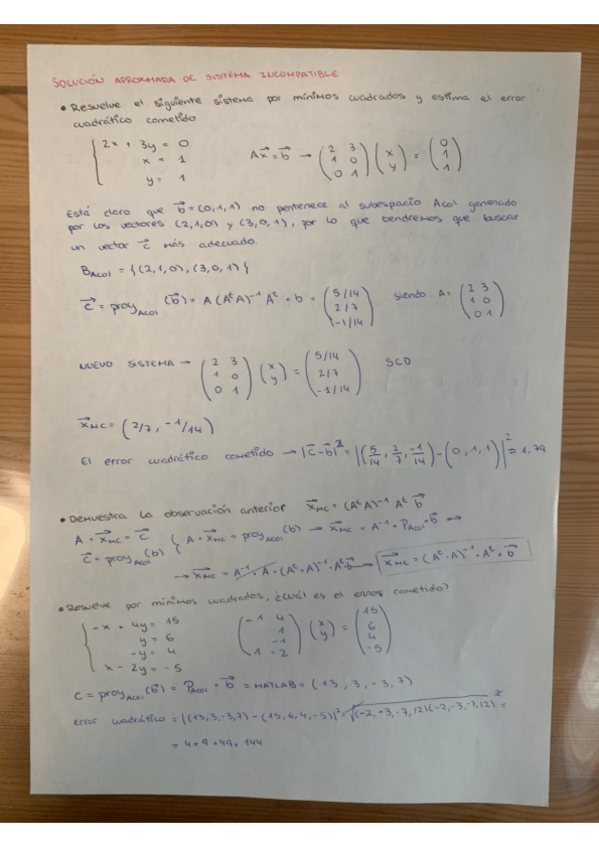 SOLUCIÓN APROXIMADA DE SISTEMA INCOMPATIBLE
• Resuelve el siguiente sistema por mínimos cuadrados y estima el error
cuadrático cometido
2x + 3y = 0
x = 1
y = 1
Ax⃗ = b⃗ → (2 3; 1 0; 0 1) (x; y) = (0; 1; 1)
Está claro que b⃗ = (0,1,1) no pertenece al subespacio Acol generado
por los vectores (2,1,0) y (3,0,1), por lo que tendremos que buscar
un vector c⃗ más adecuado.
B_Acol = {(2,1,0), (3,0,1)}
c⃗ = proy_Acol (b⃗) = A (AᵗA)⁻¹ Aᵗ · b = (5/14; 2/7; -1/14) siendo A = (2 3; 1 0; 0 1)
NUEVO SISTEMA → (2 3; 1 0; 0 1) (x; y) = (5/14; 2/7; -1/14) SCD
x⃗_MC = (2/7, -1/14)
El error cuadrático cometido → |c⃗-b⃗|² = |(5/14, 2/7, -1/14) - (0,1,1)|² = 1.79
• Demuestra la observación anterior x⃗_MC = (AᵗA)⁻¹ Aᵗ b⃗
A · x⃗_MC = c⃗
c⃗ = proy_Acol (b⃗)
{ A · x⃗_MC = proy_Acol (b) → x⃗_MC = A⁻¹ · P_Acol · b⃗ →
→ x⃗_MC = A⁻¹ · A · (Aᵗ·A)⁻¹ · Aᵗ b⃗ → x⃗_MC = (Aᵗ·A)⁻¹ · Aᵗ · b⃗
• Resuelve por mínimos cuadrados, ¿Cuál es el error cometido?
-x + 4y = 15
y = 6
-y = 4
x - 2y = -5
(-1 4; 1; -1; 1 -2) (x; y) = (15; 6; 4; -5)
C = proy_Acol (b⃗) = P_Acol · b⃗ = MATLAB = (13, 3, -3, 7)
Error cuadrático = |(13,3,-3,7) - (15,6,4,-5)|² = √(-2,-3,-7,12)(-2,-3,-7,12)² =
= 4+9+49+144